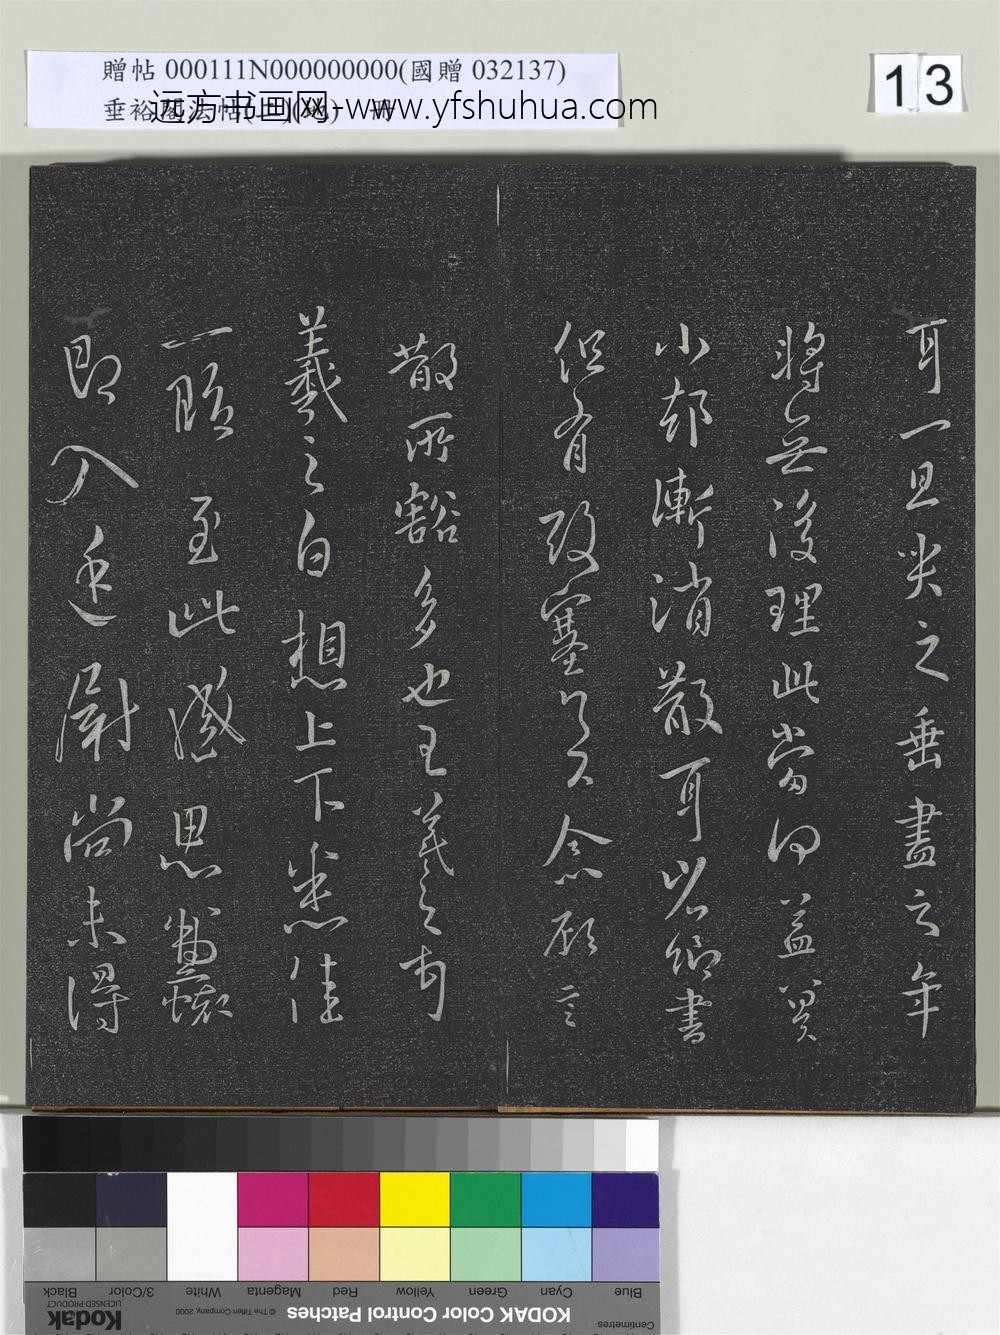 贈帖 000111N000000000(國贈 032137)
垂裕閣法帖(
远方书画网-www.yfshuhua.com
13
耳一旦哭之垂盡之年
將無復理此當何益冀
小却漸消散耳省卿書
但有酸塞足下念顧言
散所豁多也王羲之頓首
羲之白想上下悉佳
頤至此感思
即入遠尉尚未得
Black
3/Color
White
Magenta
Red
Yellow
Green
Cyan
Blue
Kodak
LICENSED PRODUCT
© The Tiffen Company, 2000
KODAK Color Control Patches
Centimetres